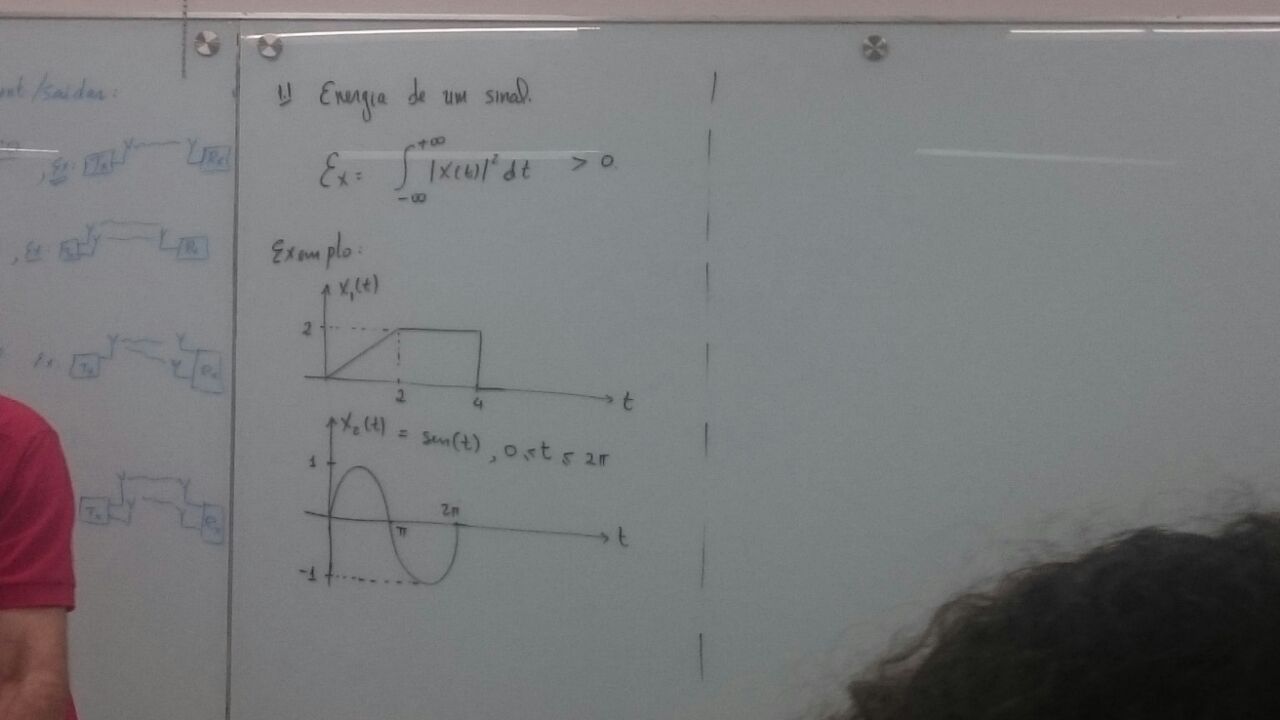 ent/saídas:
, Ex: Tx Rx
, Ex: Rx
Ex: Tx Rx
Tx Rx
1.) Energia de um sinal.
Ɛx = ∫_{-∞}^{+∞} |X(t)|² dt > 0.
Exemplo:
X₁(t)
2
2 4 t
X₂(t) = sen(t), 0 ≤ t ≤ 2π
1
π 2π t
-1